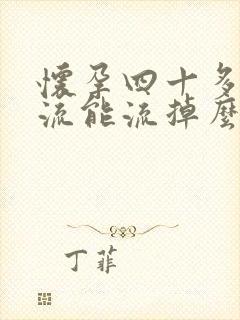 懷孕四十多
流能流掉麼
丁菲